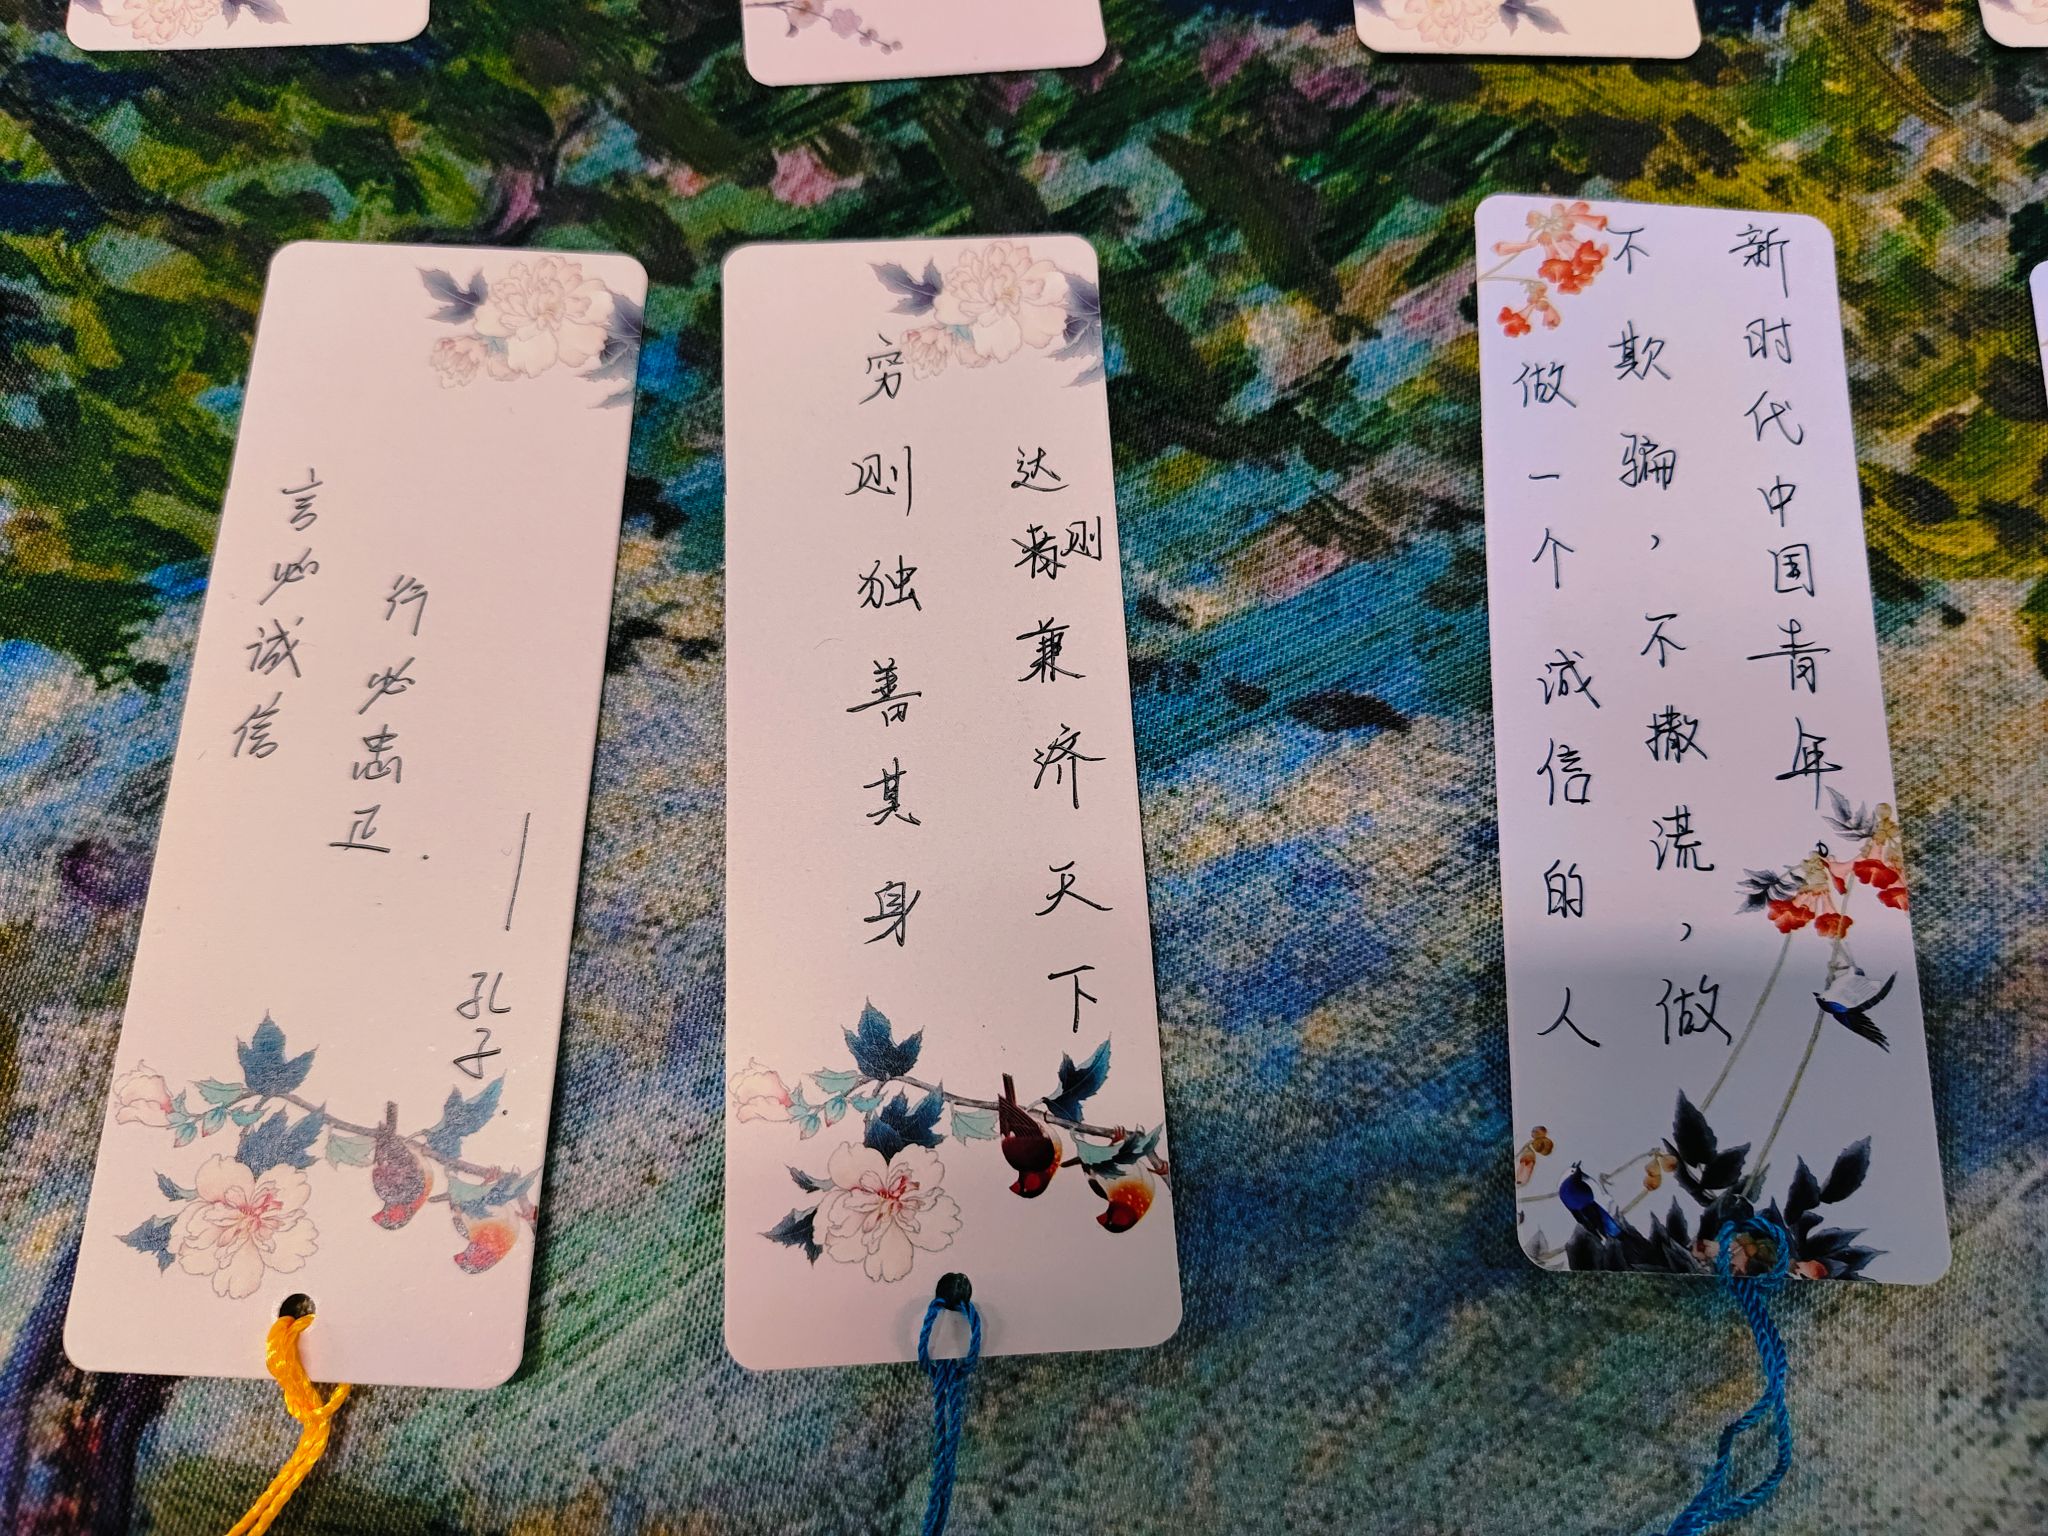 言必诚信
行必忠正.
——孔子.
穷则独善其身
达则兼济天下
做一个诚信的人
不欺骗，不撒谎，做
新时代中国青年。